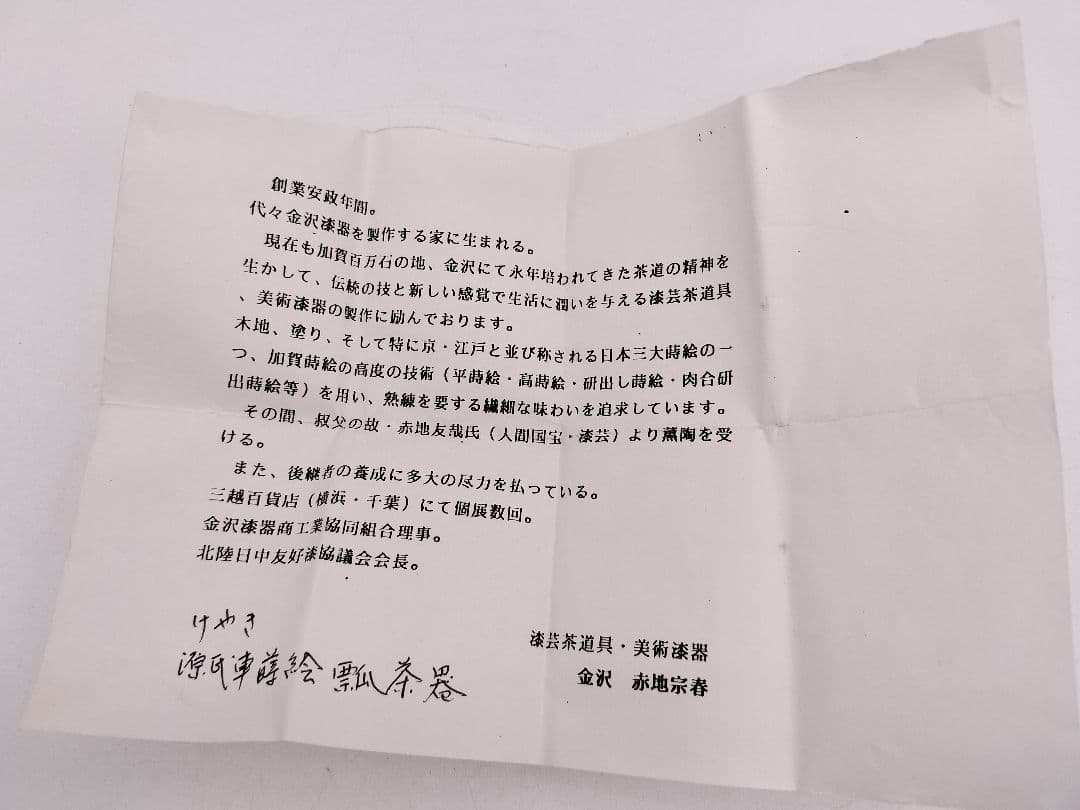 創業安政年間。
代々金沢漆器を製作する家に生まれる。
現在も加賀百万石の地、金沢にて永年培われてきた茶道の精神を
生かして、伝統の技と新しい感覚で生活に潤いを与える漆芸茶道具
、美術漆器の製作に励んでおります。
木地、塗り、そして特に京・江戸と並び称される日本三大蒔絵の一
つ、加賀蒔絵の高度の技術（平蒔絵・高蒔絵・研出し蒔絵・肉合研
出蒔絵等）を用い、熟練を要する繊細な味わいを追求しています。
その間、叔父の故・赤地友哉氏（人間国宝・漆芸）より薫陶を受
ける。
また、後継者の養成に多大の尽力を払っている。
三越百貨店（横浜・千葉）にて個展数回。
金沢漆器商工業協同組合理事。
北陸日中友好漆協議会会長。
けやき
源氏車蒔絵 瓢茶器
漆芸茶道具・美術漆器
金沢　赤地宗春